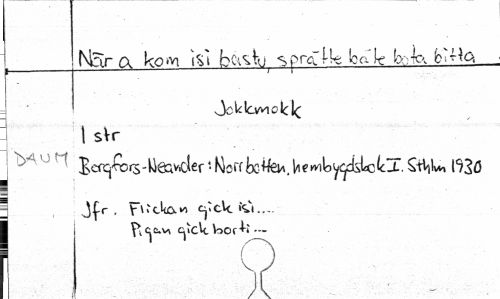 När a kom isi bastu, sprätte båte bota bitta
Jokkmokk
1 str
DAUM
Bergfors-Neander: Norrbotten, hembygdsbok I. Sthlm 1930
Jfr. Flickan gick isi....
Pigan gick borti...